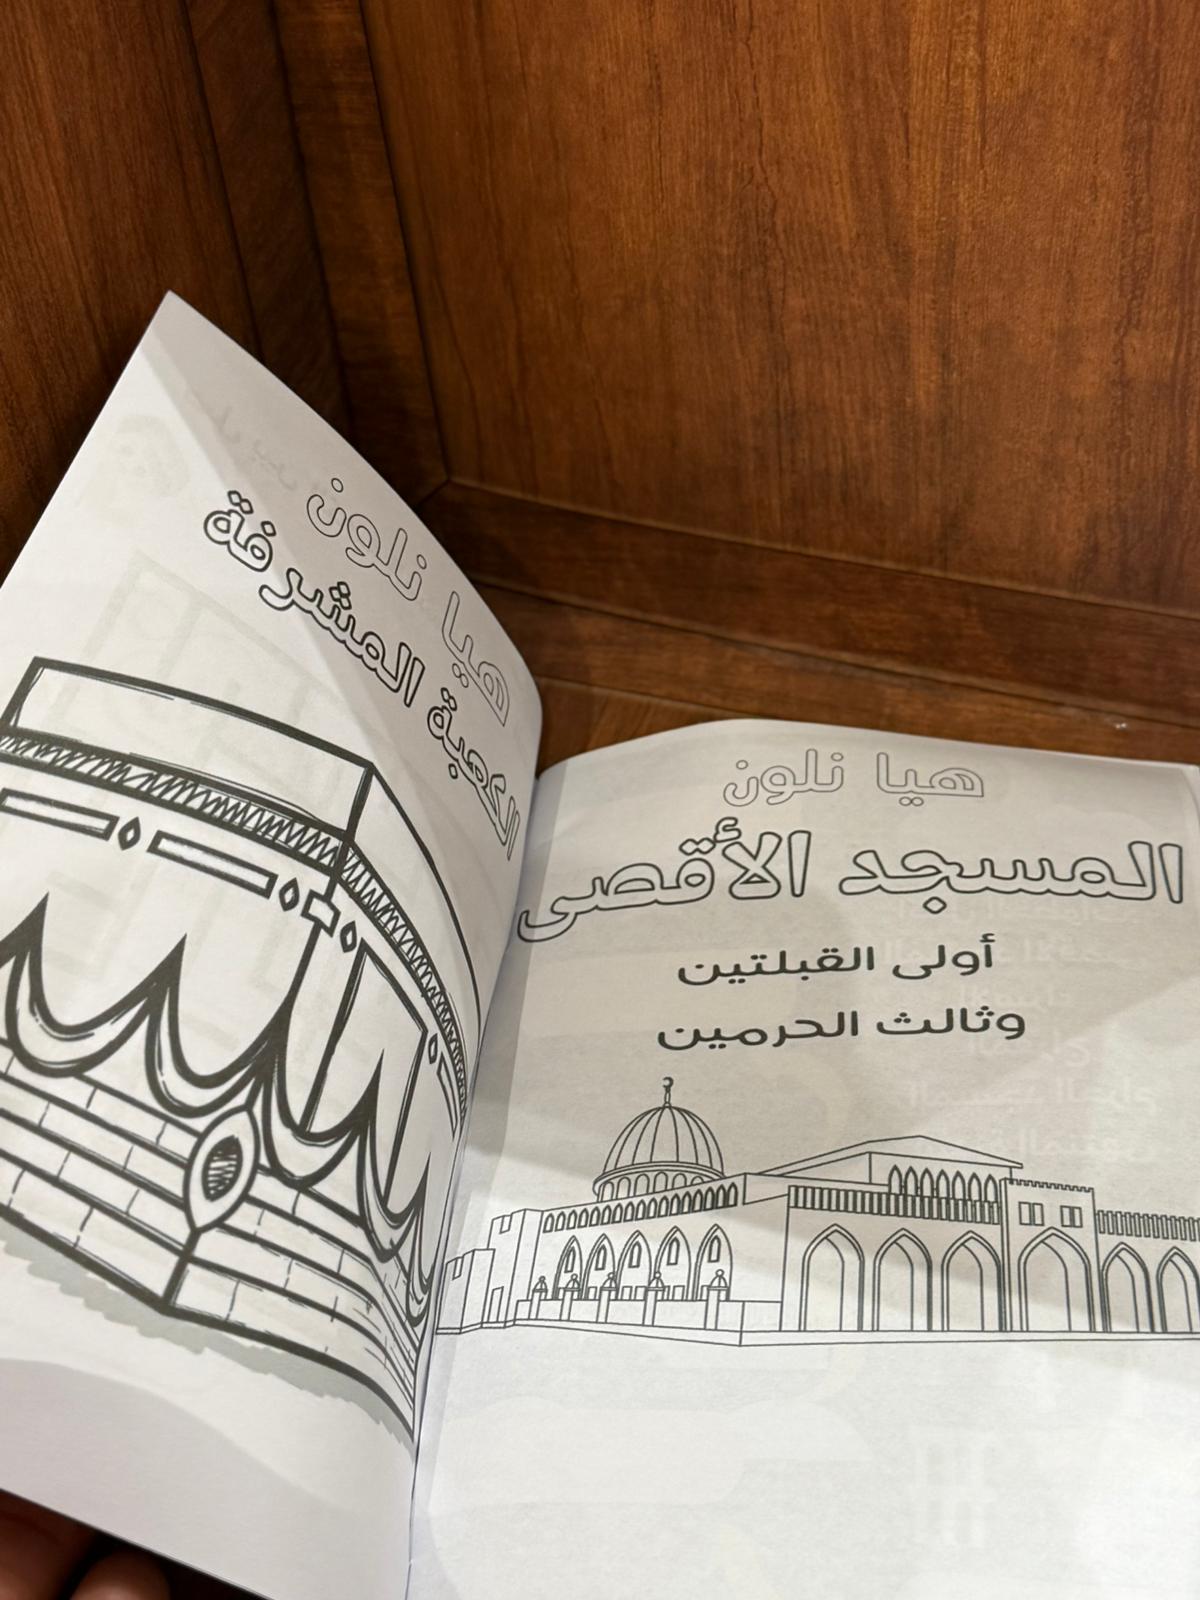 هيا نلون
المسجد الأقصى
أولى القبلتين
وثالث الحرمين
هيا نلون
الكعبة المشرفة